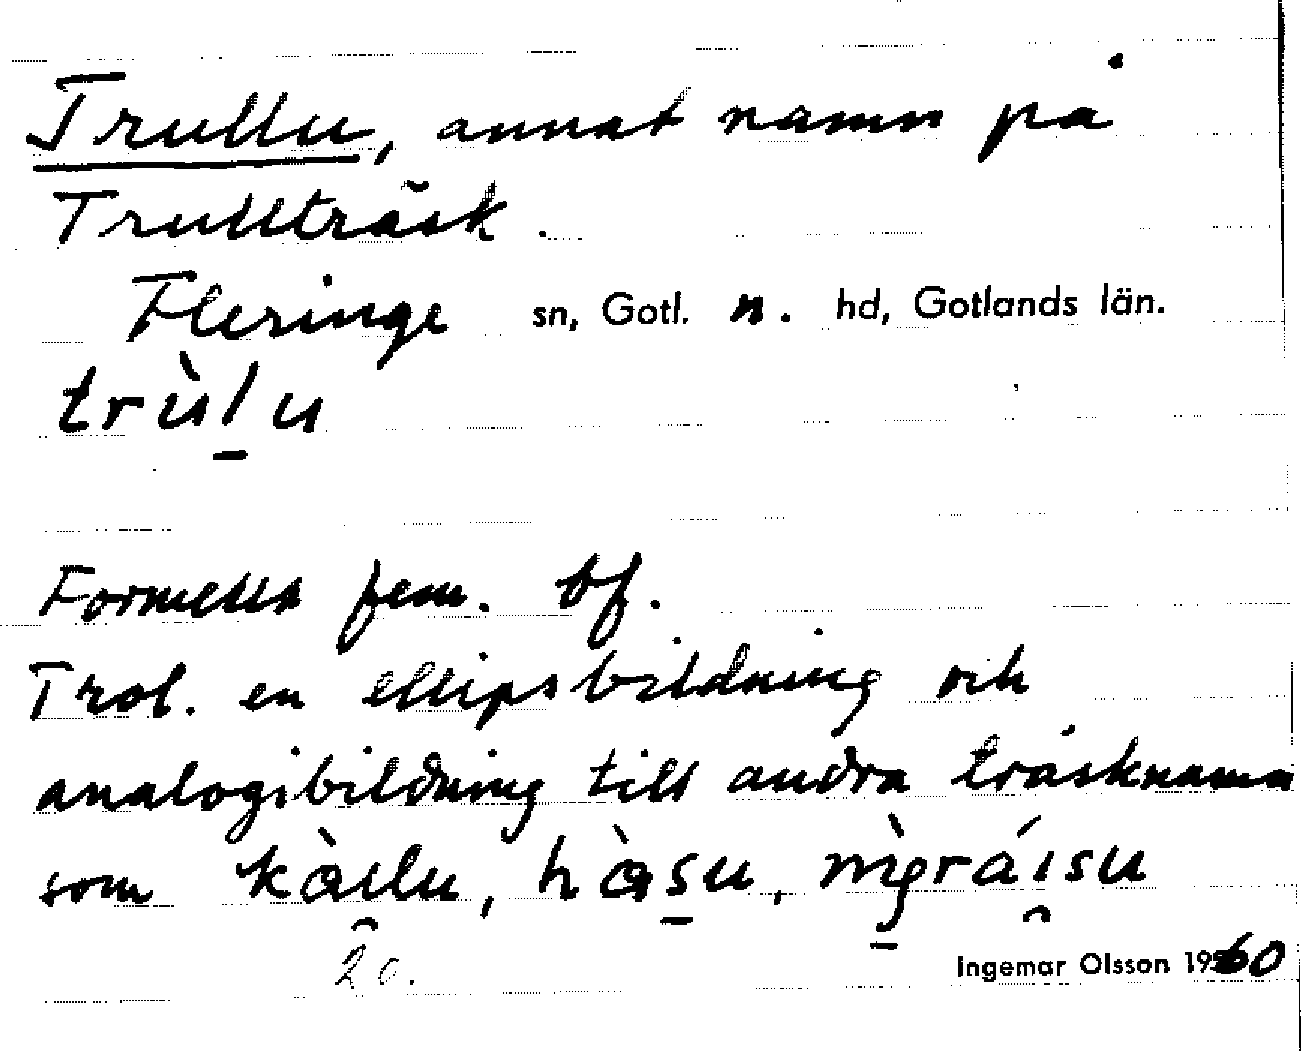 Trullu, annat namn på
Trullträsk.
Fleringe sn, Gotl. n. hd, Gotlands län.
trùl̠u
Formellt fem. bf.
Trol. en ellipsbildning och
analogibildning till andra träsknamn
som kàı̯lu, hɑ̀s̠u,
20.
Ingemar Olsson 1960